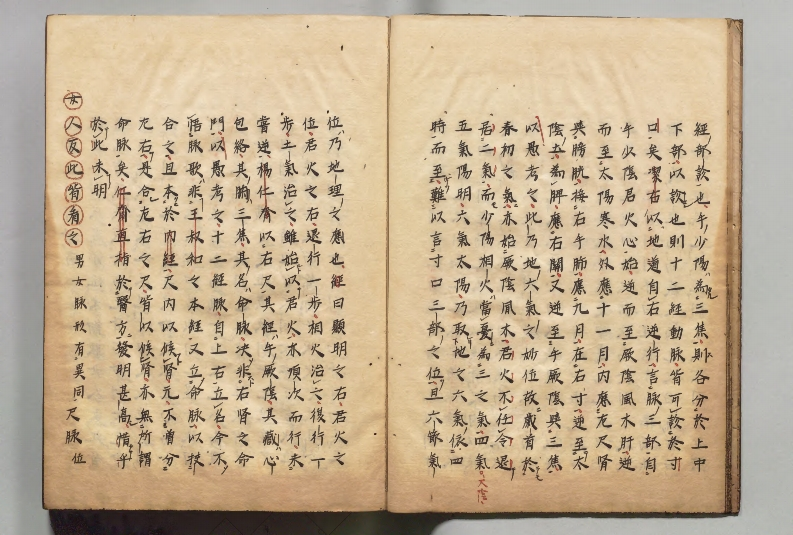 經部診也午少陽為三焦則各分於上中
下部以診也則十二經動脉皆可診於寸
口矣潔古以地道自右逆行言脉三部自
午少陰君火心始逆而至厥陰風木肝逆
而至太陽寒水外應十一月內應左尺腎
與膀胱接右午肺應九月在右寸逆至太
陰土為脾應右關又逆至午厥陰與三焦
以愚考之此乃地六氣之位故歲首於
春初之氣亦始厥陰風木君火不任令退
居二氣而少陽相火當夏為三之氣四氣太陰
五氣陽明六氣太陽乃取地之六氣依四
時而至難以言寸口三部之位且六節氣
位乃地理之應也經曰顯明之右君火之
位君火之右退行一步相火治之復行一
步土氣治之雖始以君火亦順次而行未
嘗逆楊仁齋以右尺其經午厥陰其藏心
包絡其腑三焦其名命脉決非右腎之命
門以愚考之十二經脉自上古立名今不
悟脉歌非王叔和之本經又立命脉以扶
合之且本於內經尺內以候腎尤不曾分
左右丹合左右之尺皆以候腎亦無所謂
命脉矣仁齋直指於腎方發明甚高惜乎
於此未明
女人反此皆看之 男女脉形有異同尺脉位